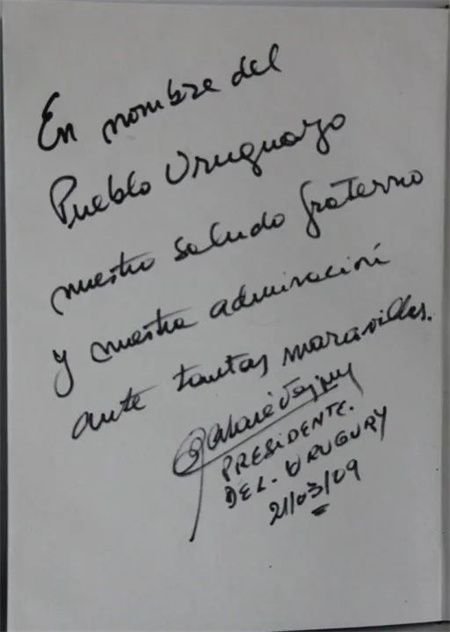 En nombre del
Pueblo Uruguayo
nuestro saludo fraterno
y nuestra admiración
ante tantas maravillas.
PRESIDENTE.
DEL. URUGUAY
21/03/09